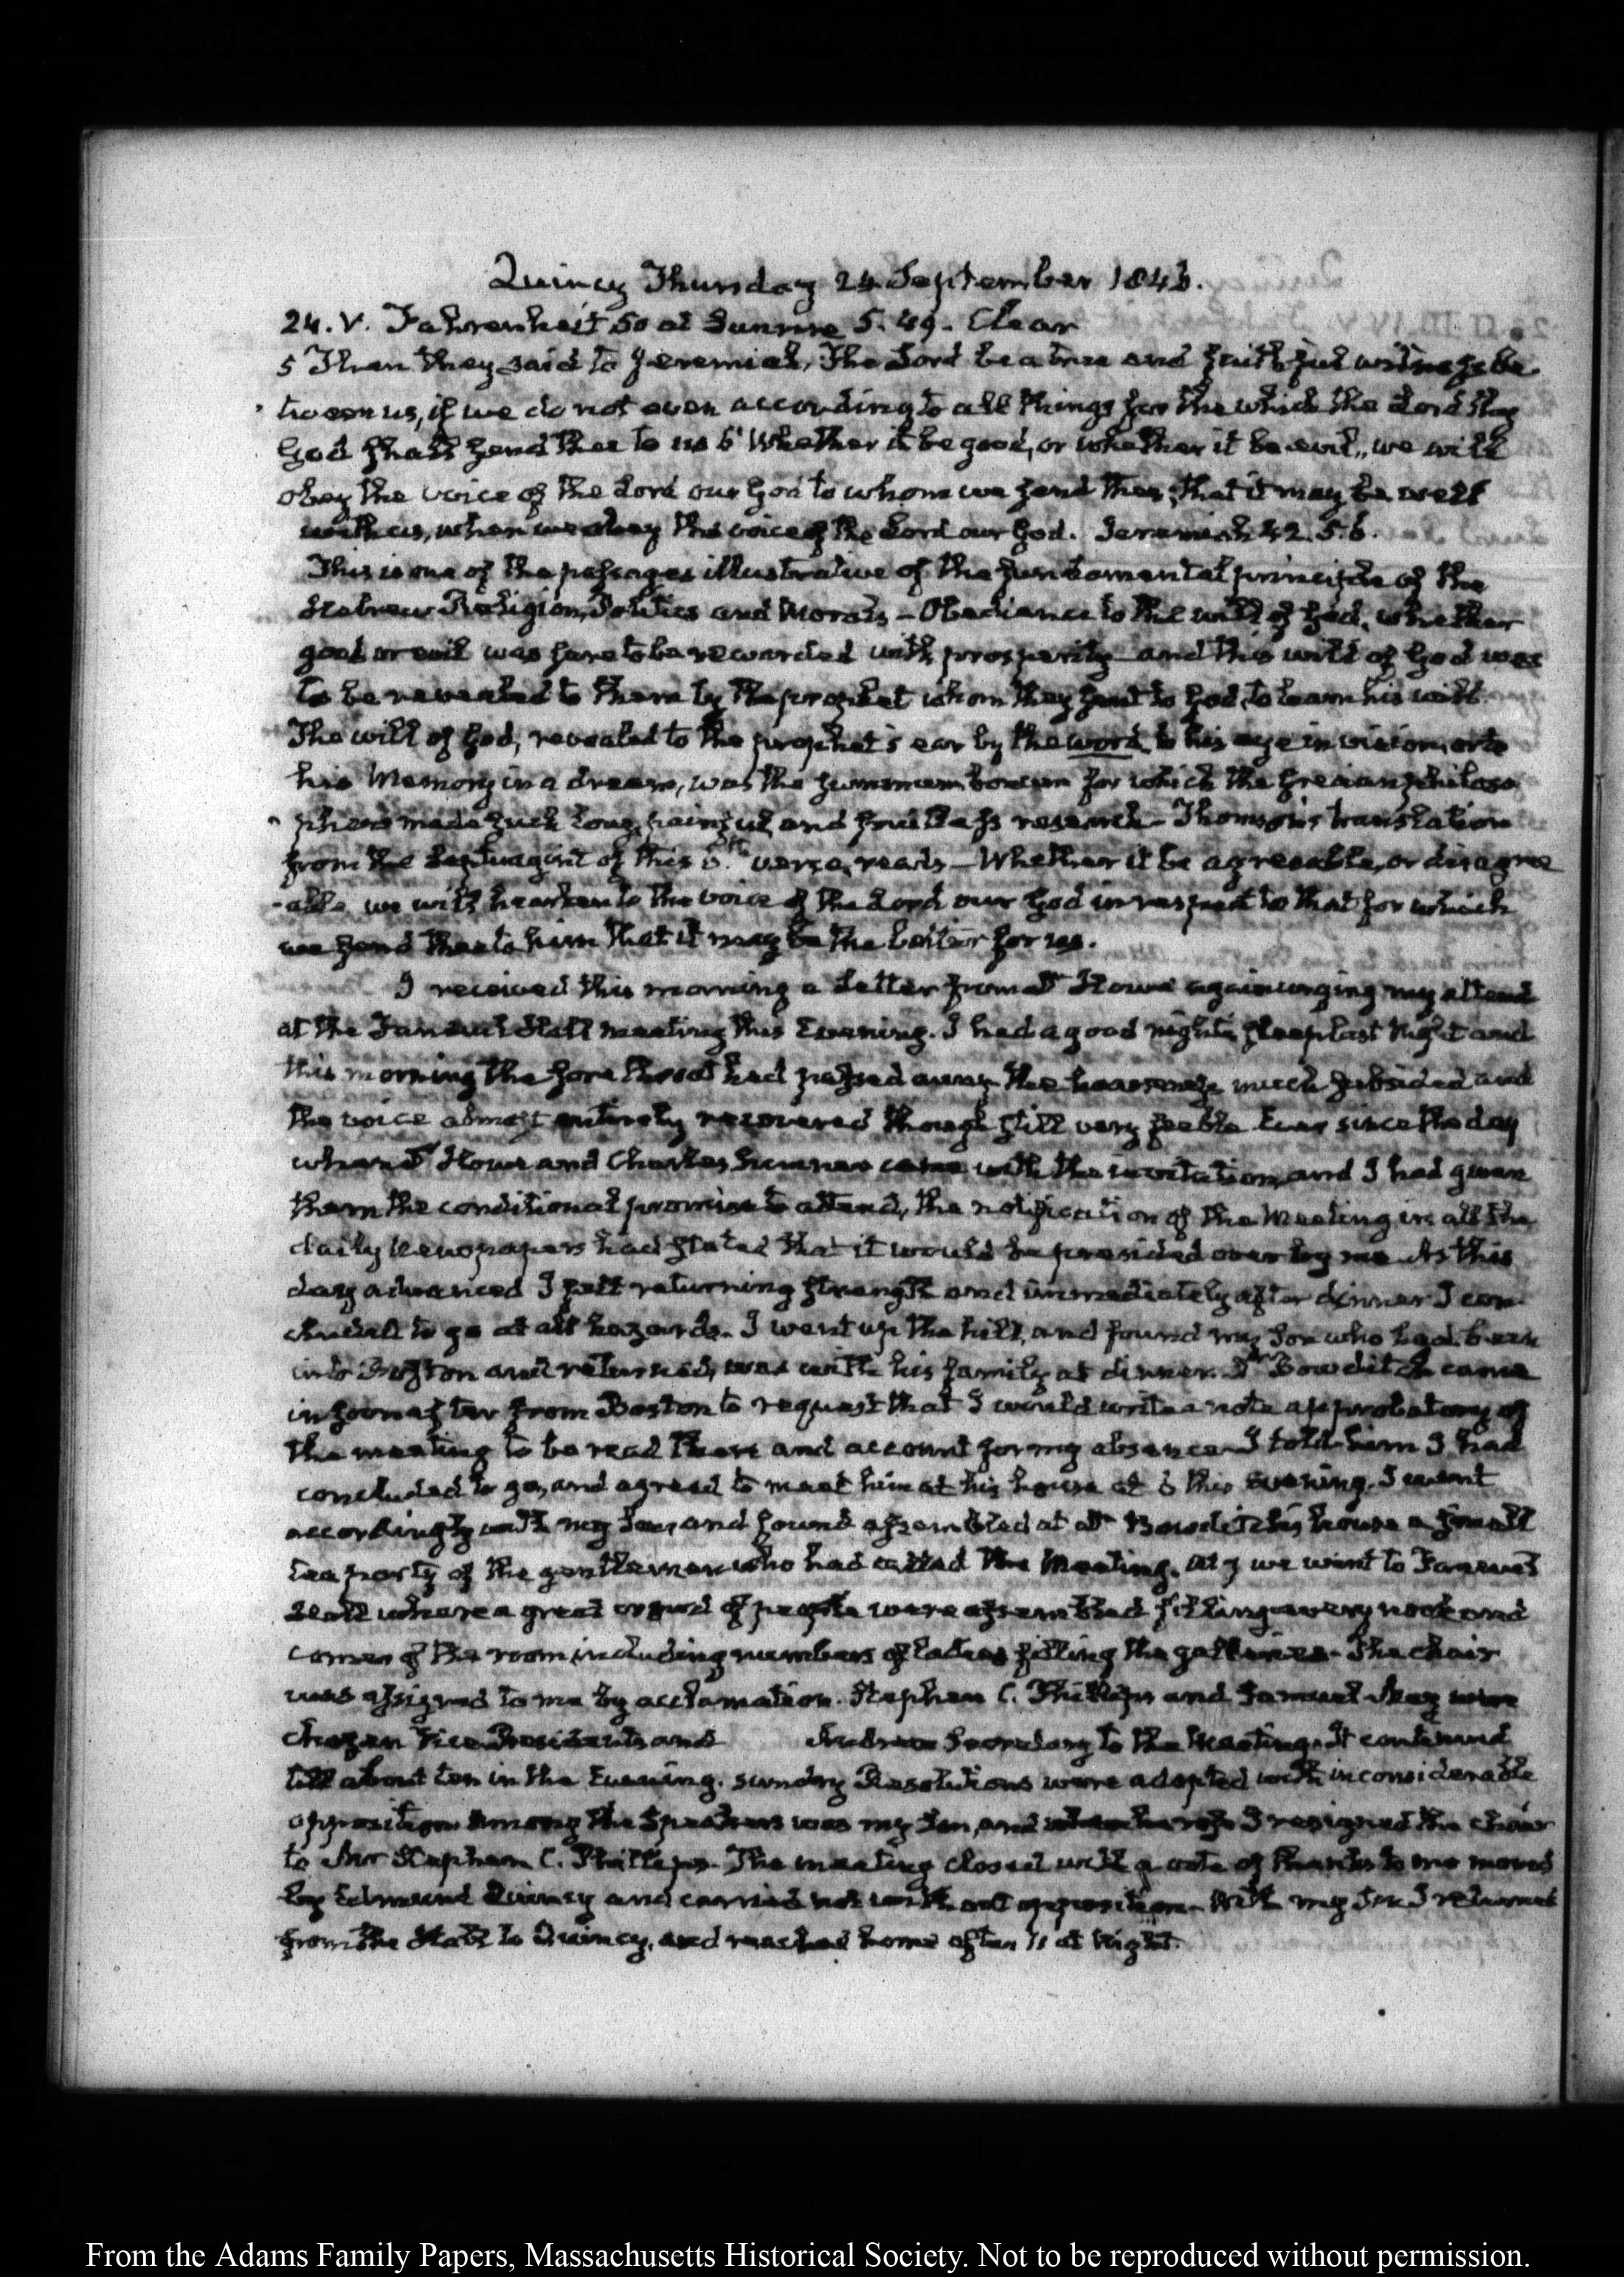 Quincy Thursday 24 September 1846.
24. V. Fahrenheit 50 at Sunrise 5.49. Clear
5 Then they said to Jeremiah, The Lord be a true and faithful witness be-
tween us, if we do not even according to all things for the which the Lord thy
God shall send thee to us 6 Whether it be good, or whether it be evil, we will
obey the voice of the Lord our God to whom we send thee; that it may be well
with us, when we obey the voice of the Lord our God. Jeremiah 42. 5.6.
This is one of the passages illustrative of the fundamental principle of the
Hebrew Religion, Politics and Morals – Obedience to the will of God, whether
good or evil was here to be rewarded with prosperity and this will of God was
to be revealed to them by the prophet whom they sent to God, to learn his will.
The will of God, revealed to the prophet's ear by the word, to his eye in vision, or to
his Memory in a dream, was the summum bonum for which the Grecian philoso-
phers made such long, painful, and fruitless research – Thomson's translation
from the Septuagint of this 6th verse, reads – Whether it be agreeable, or disagree-
-able we will hearken to the voice of the Lord our God in respect to that for which
we send thee to him that it may be the better for us.
I received this morning a letter from Dr Howe again urging my attend
at the Faneuil Hall meeting this Evening. I had a good night's sleep last Night and
this morning the sore throat had passed away, the hoarseness much subsided and
the voice almost entirely recovered though still very feeble Ever since the day
when Dr Howe and Charles Sumner came with the invitation, and I had given
them the conditional promise to attend, the notification of the Meeting in all the
daily Newspapers had stated that it would be presided over by me. As this
day advanced I felt returning strength and immediately after dinner I con-
cluded to go at all hazards. I went up the hill, and found my Son who had been
into Boston and returned, was with his family at dinner. Dr Bowditch came
in soon after from Boston to request that I would write a note approbatory of
the meeting to be read there and account for my absence – I told him I had
concluded to go, and agreed to meet him at his house at 6 this Evening. I went
accordingly with my Son, and found assembled at Dr Bowditch's house a small
tea party of the gentlemen who had called the Meeting. At 7 we went to Faneuil
Hall where a great crowd of people were assembled filling every nook and
corner of the room including numbers of ladies filling the galleries – The chair
was assigned to me by acclamation. Stephen C. Phillips and Samuel May were
chosen Vice Presidents and Andrew Secretary to the Meeting. It continued
till about ten in the Evening. sundry Resolutions were adopted with inconsiderable
opposition Among the Speakers was my Son, and I resigned the chair
to Mr Stephen C. Phillips. The meeting closed with a vote of thanks to me moved
by Edmund Quincy and carried not without opposition – With my Son I returned
from the Hall to Quincy, and reached home after 11 at Night.
From the Adams Family Papers, Massachusetts Historical Society. Not to be reproduced without permission.